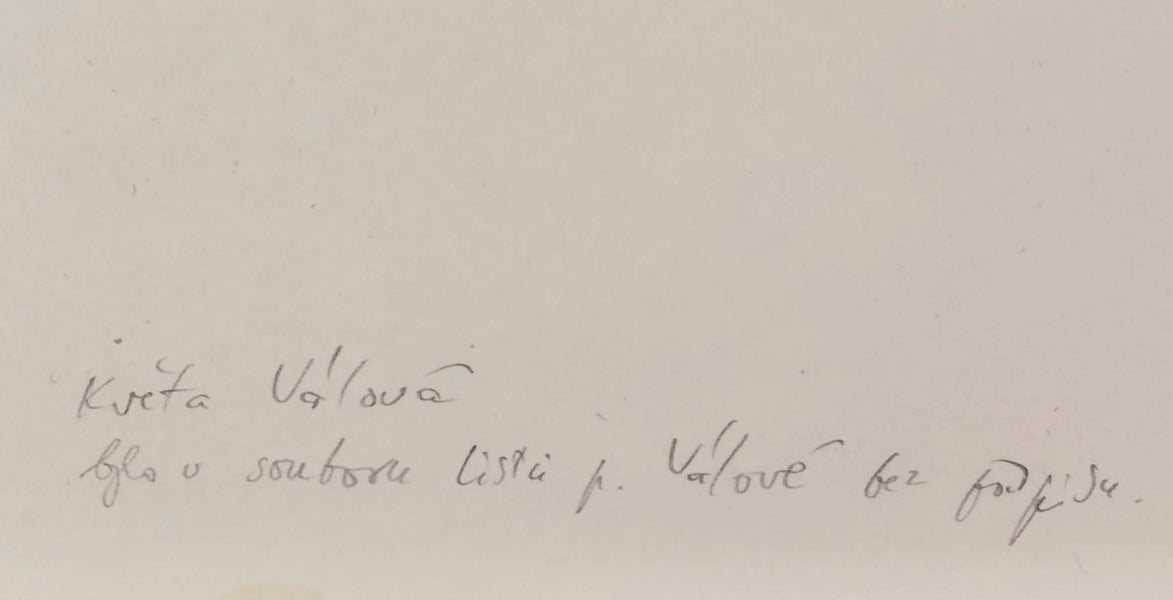 Květa Válová
bylo v souboru listů p. Válové bez podpisu.